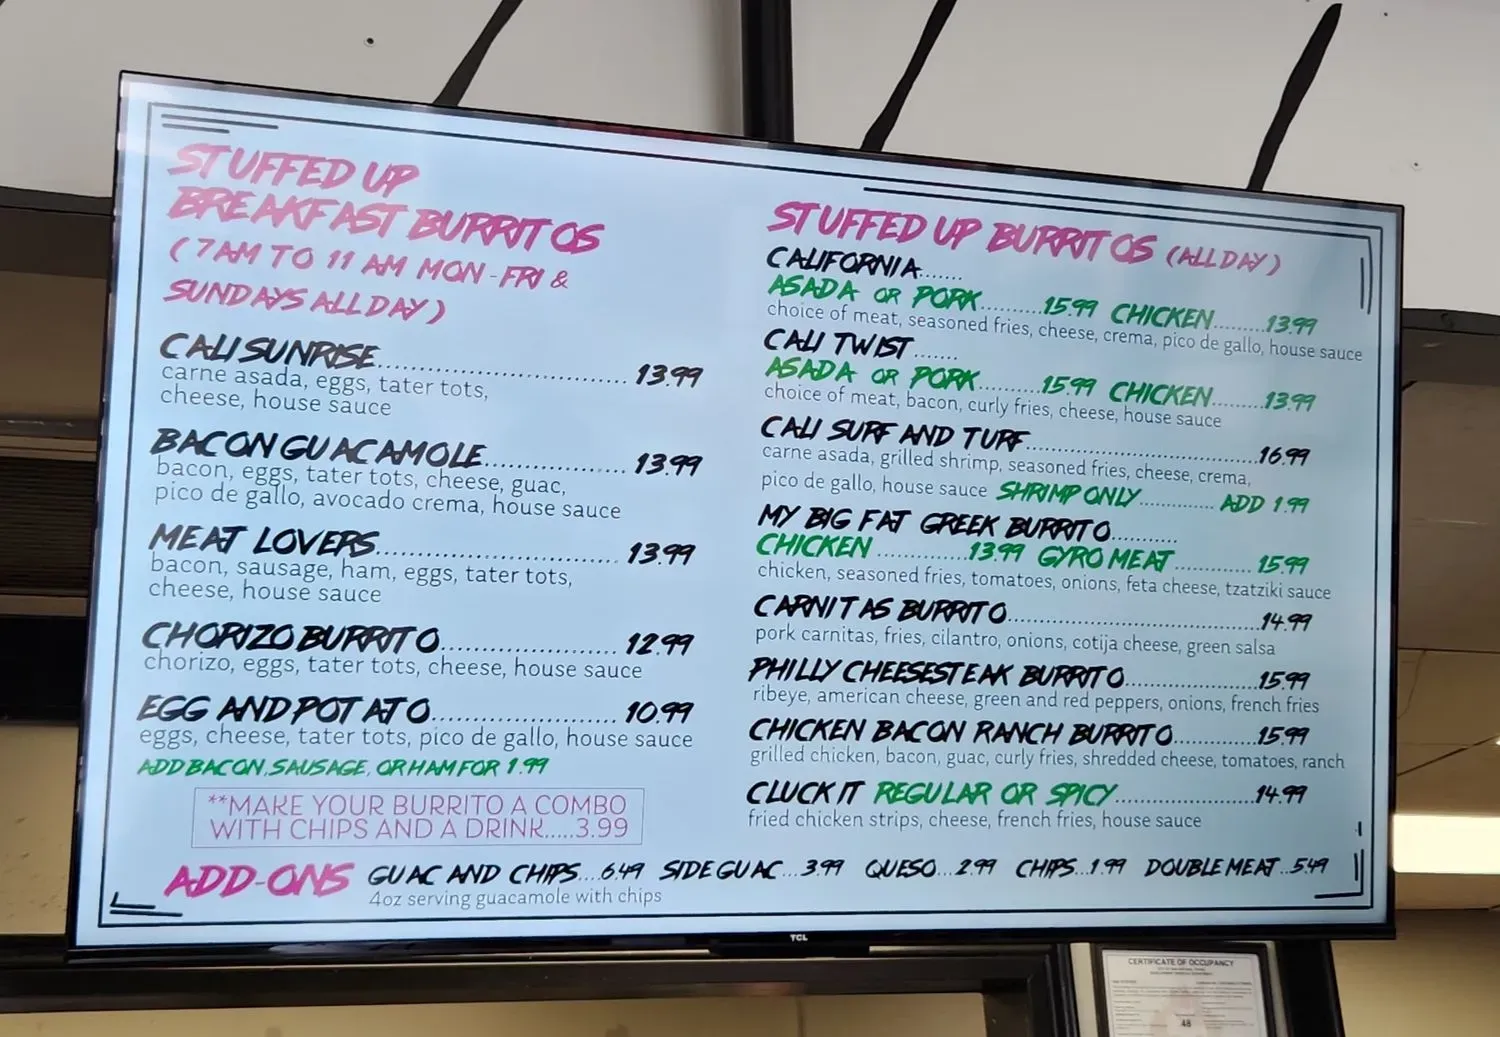 STUFFED UP
BREAKFAST BURRITOS
(7AM TO 11 AM MON-FRI &
SUNDAYS ALL DAY)
CALI SUNRISE.......................... 13.99
carne asada, eggs, tater tots,
cheese, house sauce
BACON GUACAMOLE................ 13.99
bacon, eggs, tater tots, cheese, guac,
pico de gallo, avocado crema, house sauce
MEAT LOVERS.......................... 13.99
bacon, sausage, ham, eggs, tater tots,
cheese, house sauce
CHORIZO BURRITO................... 12.99
chorizo, eggs, tater tots, cheese, house sauce
EGG AND POTATO.................... 10.99
eggs, cheese, tater tots, pico de gallo, house sauce
ADD BACON, SAUSAGE, OR HAM FOR 1.99
**MAKE YOUR BURRITO A COMBO
WITH CHIPS AND A DRINK.....3.99
STUFFED UP BURRITOS (ALL DAY)
CALIFORNIA.......
ASADA OR PORK..........15.99 CHICKEN.........13.99
choice of meat, seasoned fries, cheese, crema, pico de gallo, house sauce
CALI TWIST.......
ASADA OR PORK..........15.99 CHICKEN.........13.99
choice of meat, bacon, curly fries, cheese, house sauce
CALI SURF AND TURF....................................16.99
carne asada, grilled shrimp, seasoned fries, cheese, crema,
pico de gallo, house sauce SHRIMP ONLY............ ADD 1.99
MY BIG FAT GREEK BURRITO...........
CHICKEN ...............13.99 GYRO MEAT............ 15.99
chicken, seasoned fries, tomatoes, onions, feta cheese, tzatziki sauce
CARNITAS BURRITO........................................14.99
pork carnitas, fries, cilantro, onions, cotija cheese, green salsa
PHILLY CHEESESTEAK BURRITO.....................15.99
ribeye, american cheese, green and red peppers, onions, french fries
CHICKEN BACON RANCH BURRITO.............15.99
grilled chicken, bacon, guac, curly fries, shredded cheese, tomatoes, ranch
CLUCK IT REGULAR OR SPICY......................14.99
fried chicken strips, cheese, french fries, house sauce
ADD-ONS GUAC AND CHIPS...6.49 SIDE GUAC...3.99 QUESO...2.99 CHIPS...1.99 DOUBLE MEAT..5.49
4oz serving guacamole with chips
TCL
CERTIFICATE OF OCCUPANCY
48